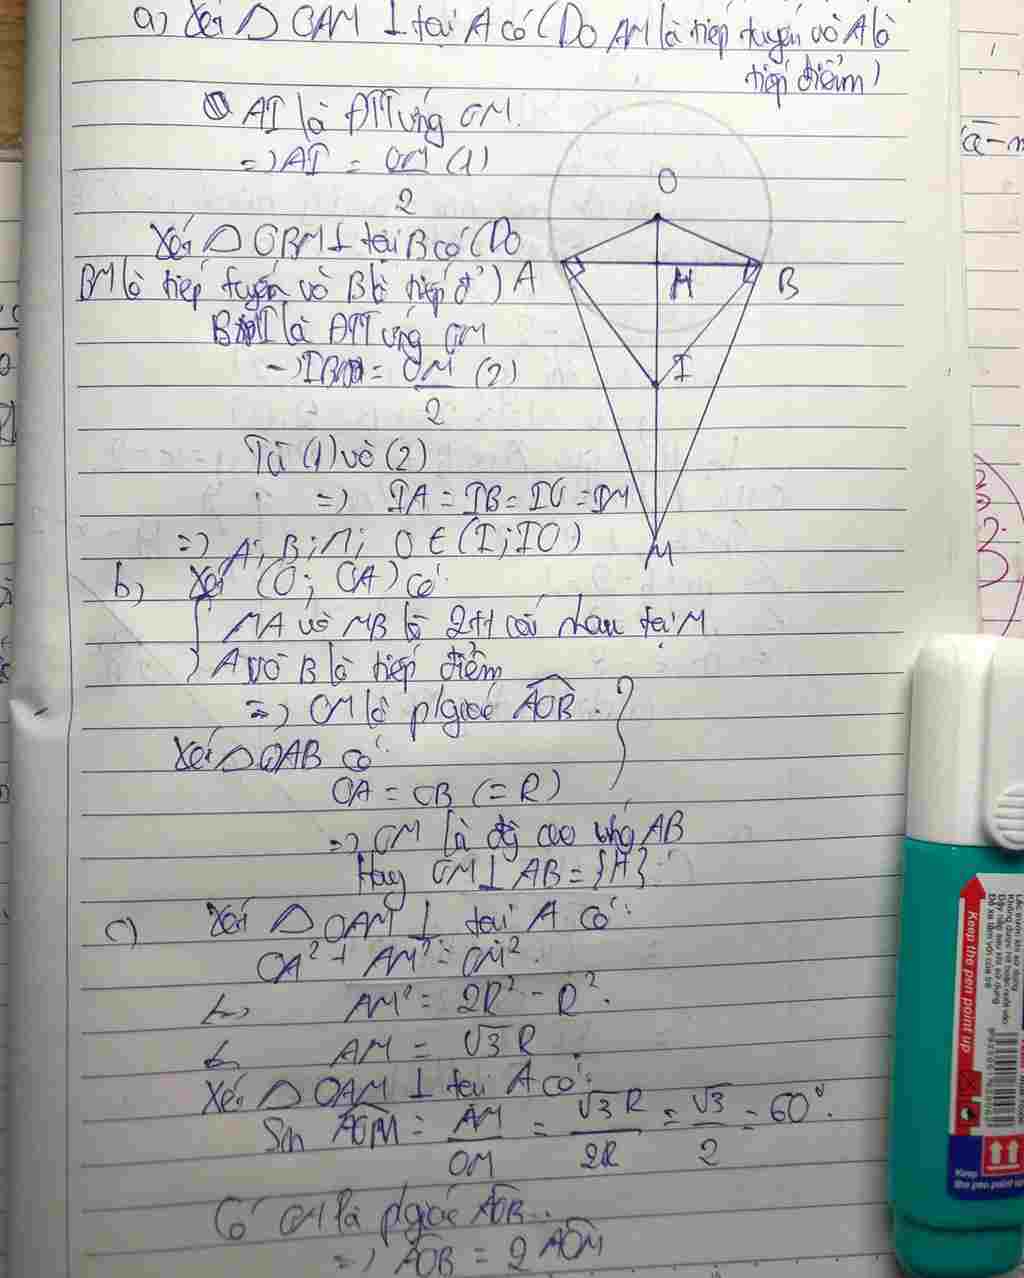 a) Xét △ OAM ⊥ tại A có (Do AM là tiếp tuyến và A là
tiếp điểm)
AI là ĐTT ứng OM.
=> AI = OM/2 (1)
Xét △ OBM ⊥ tại B có (Do
BM là tiếp tuyến và B là tiếp đ')
BI là ĐTT ứng OM
=> IB = OM/2 (2)
Từ (1) và (2)
=> IA = IB = IO = IM
=> A; B; M; O ∈ (I; IO)
O
A
H
B
I
M
b) Xét (O; OA) có
MA và MB là 2tt cắt nhau tại M
A và B là tiếp điểm
=> OM là p/giác AOB.
Xét △OAB có
OA = OB (= R)
=> OM là đg cao ứng AB
Hay OM ⊥ AB = {H}.
c) Xét △ OAM ⊥ tại A có:
OA² + AM² = OM².
AM² = 2R² - R².
AM = √3 R
Xét △ OAM ⊥ tại A có:
Sin AOM = AM/OM = √3 R/2R = √3/2 = 60°.
Có OM là p/giác AOB.
=> AOB = 2 AOM
Keep the pen point up
Keep
the pen point up